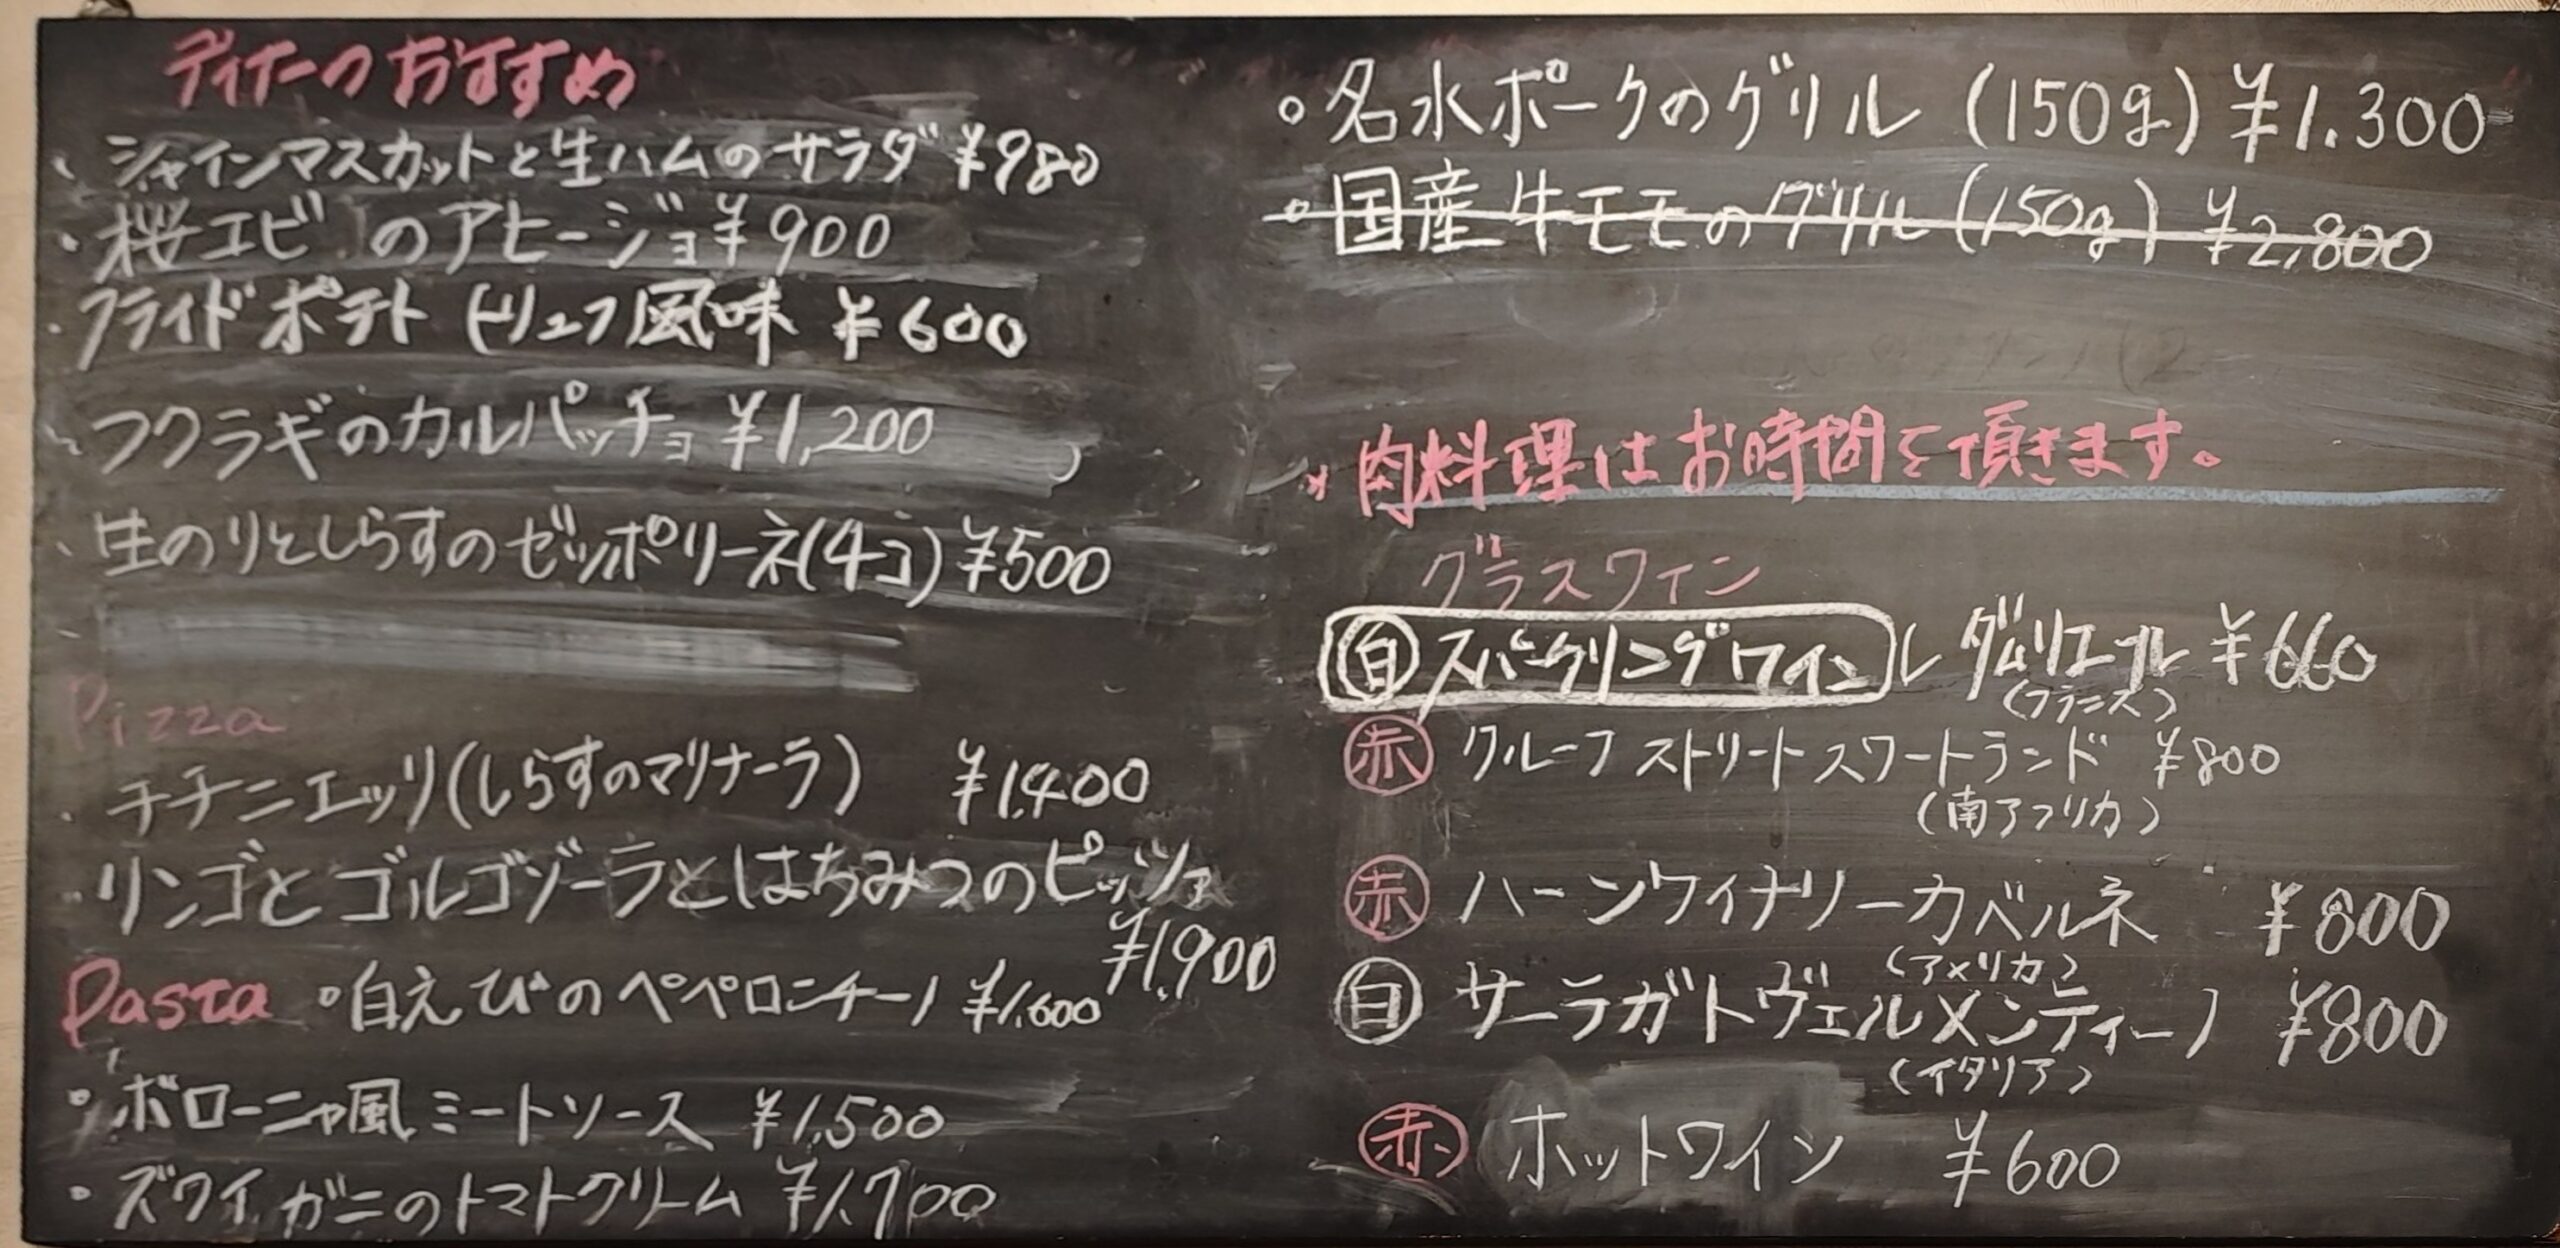 ディナーのおすすめ
・シャインマスカットと生ハムのサラダ ¥980
・桜エビのアヒージョ ¥900
・フライドポテト トリュフ風味 ¥600
・フクラギのカルパッチョ ¥1,200
・生のりとしらすのゼッポリーネ(4コ) ¥500
Pizza
・チチニエッリ(しらすのマリナーラ) ¥1,400
・リンゴとゴルゴゾーラとはちみつのピッツァ
¥1,900
Pasta 。白えびのペペロンチーノ ¥1,600
・ボローニャ風ミートソース ¥1,500
・ズワイガニのトマトクリーム ¥1,700
。名水ポークのグリル (150g) ¥1.300
。国産牛モモのグリル (150g) ¥2,800
* 肉料理はお時間を頂きます。
グラスワイン
白 スパークリングワイン レ ダムリエール ¥660
(フランス)
赤 クルーフ ストリート スワートランド ¥800
(南アフリカ)
赤 ハーンワイナリーカベルネ ¥800
(アメリカ)
白 サーラガトヴェルメンティーノ ¥800
(イタリア)
赤 ホットワイン ¥600